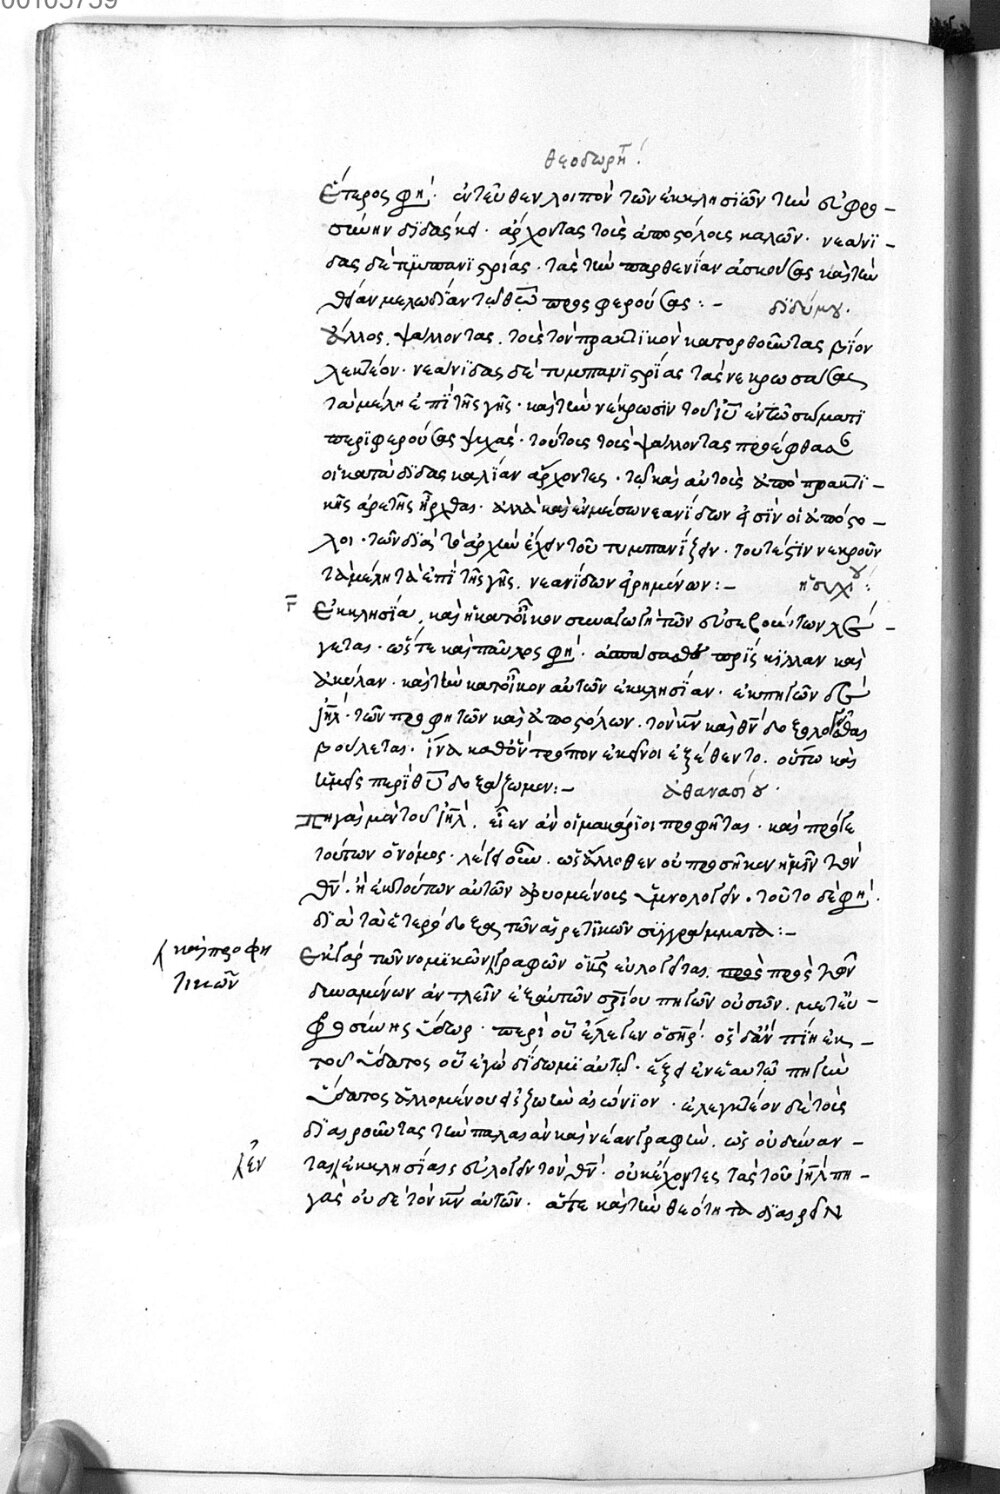 00105759
θεοδωρήτ
Ἕτερος φη΄. ἐντεῦθεν λοιπὸν τῶν ἐκκλησϊῶν τὴν σϊφρο –
σύνην δϊδάσκει. ἄρχοντας τοὺς ἀποστόλους καλῶν. νεανϊ –
δας δὲ τυμπανϊστρίας. τὰς τὴν παρθενίαν ἀσκούσας καὶ τὴν
θείαν μελωδίαν τῷ θῶ προσφερούσας : – διδύμου.
Ἄλλος. ψάλλοντας. τοὺς τὸν πρακτϊκὸν κατορθοῦντας βίον
λεκτέον. νεάνϊδας δὲ τυμπανϊστρϊας τὰς νεκρωσάσας
τὰ μέλη ἐπὶ τῆς γῆς. καὶ τὴν νέκρωσϊν τοῦ ἰῦ ἐν τῷ σώματϊ
περϊφερούσας ψυχάς. τούτους τοὺς ψάλλοντας προέφθασαν
οἱ κατὰ δϊδασκαλίαν ἄρχοντες. τῷ καὶ αὐτοὺς ἀπὸ πρακτϊ –
κῆς ἀρετῆς ἦρχθαι. ἀλλὰ καὶ ἐν μέσω νεανίδων εἰσὶν οἱ ἀπόστο –
λοι. τῶν διὰ τὸ ἀρχὴν ἔχειν τοῦ τυμπανίζειν. τουτέστϊν νεκροῦν
τὰ μέλη τὰ ἐπὶ τῆς γῆς. νεανίδων εἰρημένων : – ἡσυχίου :
Ἐκκλησία, καὶ ἡ κατοῖκον συναγωγὴ τῶν εὐσεβούντων λέ –
γεται. ὥστε καὶ παῦλος φη΄. ἀσπάσασθε πρίσκϊλλαν καὶ
ἀκύλαν. καὶ τὴν κατοῖκον αὐτῶν ἐκκλησίαν. ἐκ πηγῶν δὲ
ἰηλ. τῶν προφητῶν καὶ ἀποστόλων. τὸν κν καὶ θν δοξολογεῖσθαι
βούλεται. ἵνα καθ' ὃν τρόπον ἐκεῖνοι ἐξέθεντο. οὕτω καὶ
ἡμεῖς περὶ θυ δοξάζωμεν : – ἀθανασίου.
Πηγαὶ μὲν τοῦ ἰηλ. εἶεν ἂν οἱ μακάριοι προφῆται. καὶ πρό γε
τούτων ὁ νόμος. λέγει οὖν. ὡς ἄλλοθεν οὐ προσῆκεν ἡμῖν τὸν
θν. ἢ ἐκ τούτων αὐτῶν ἀρυομένοις ὑμνολογεῖν. τοῦτο δὲ φη΄.
διὰ τὰ ἑτερόδοξα τῶν αἱρετϊκῶν συγγράμματα : –
καὶ προφη
τικῶν
Ἐκ γὰρ τῶν νομϊκῶν γραφῶν ὁ κς εὐλογεῖται. πρὸς πρὸς τῶν
δυναμένων ἀντλεῖν ἐξ αὐτῶν σρίου πηγῶν οὐσῶν. μετ' εὐ –
φροσύνης ὕδωρ. περὶ οὗ ἔλεγεν ὁ σηρ. ὃς δ' ἂν πίῃ ἐκ –
τοῦ ὕδατος οὗ ἐγὼ δίδωμϊ αὐτῷ. ἕξει ἐν ἑαυτῷ πηγὴν
ὕδατος ἁλλομένου εἰς ζωὴν αἰώνϊον. ἐλεγκτέον δὲ τοὺς
διαιροῦντας τὴν παλαιὰν καὶ νέαν γραφήν. ὡς οὐ δύναν –
ἐν
ται ἐκκλησίαις εὐλογεῖν τὸν θν. οὐκ ἔχοντες τὰς τοῦ ἰηλ πη –
γὰς οὐδὲ τὸν κν αὐτῶν. ἅτε καὶ τὴν θεότητα διαιρεῖν